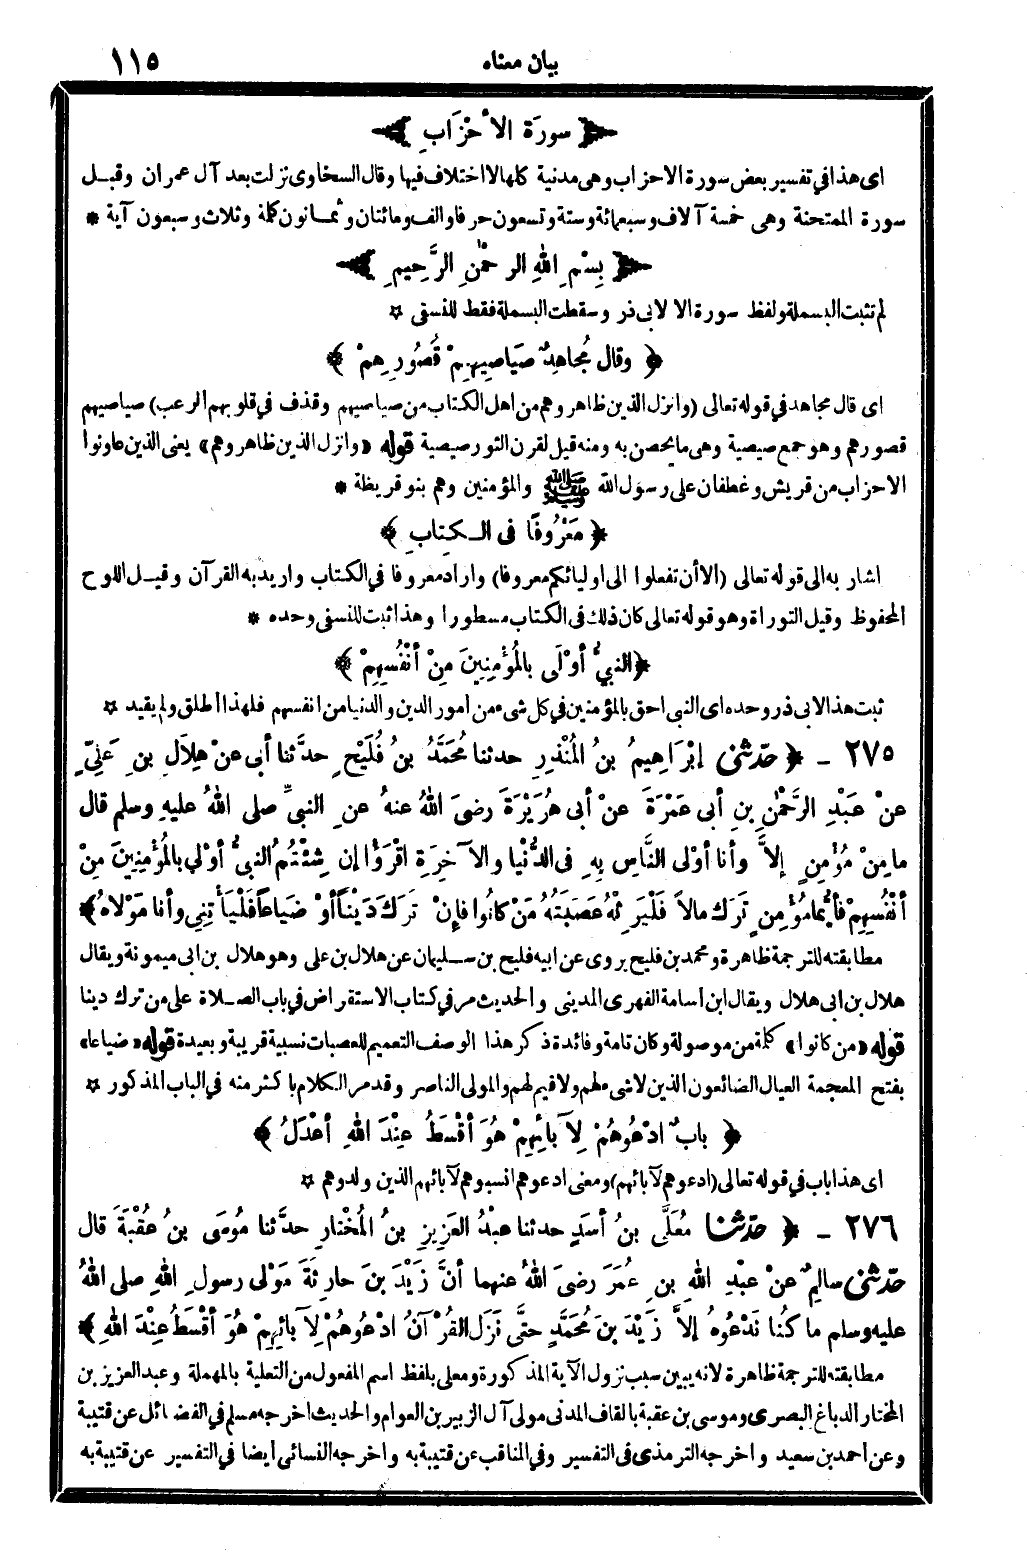 بيان معناه ١١٥
﴿ سورة الأحزاب ﴾
اى هذا فى تفسير بعض سورة الاحزاب وهى مدنية كلها لا اختلاف فيها وقال السخاوى نزلت بعد آل عمران وقبل
سورة الممتحنة وهى خمسة آلاف وسبعمائة وستة وتسعون حرفا والف ومائتان وثمانون كلمة وثلاث وسبعون آية *
﴿ بِسْمِ اللهِ الرحمٰنِ الرَّحِيمِ ﴾
لم تثبت البسملة ولفظ سورة الا لابى ذر وسقطت البسملة فقط للنسفى ✩
﴿ وقال مُجاهِدٌ صَياصِيهِمْ قُصُورِهِمْ ﴾
اى قال مجاهد فى قوله تعالى (وانزل الذين ظاهروهم من اهل الكتاب من صياصيهم وقذف فى قلوبهم الرعب) صياصيهم
قصورهم وهو جمع صيصية وهى ما يحصن به ومنه قيل لقرن الثور صيصية قوله «وانزل الذين ظاهروهم» يعنى الذين عاونوا
الاحزاب من قريش وغطفان على رسول الله ﷺ والمؤمنين وهم بنو قريظة *
﴿ مَعْرُوفًا فى الكِتابِ ﴾
اشار به الى قوله تعالى (الا أن تفعلوا الى اوليائكم معروفا) واراد معروفا فى الكتاب واريد به القرآن وقيل اللوح
المحفوظ وقيل التوراة وهو قوله تعالى كان ذلك فى الكتاب مسطورا وهذا ثبت للنسفى وحده *
﴿ النبىُّ أوْلَى بالمُؤْمِنِينَ مِنْ أنْفُسِهِمْ ﴾
ثبت هذا لابى ذر وحده اى النبى احق بالمؤمنين فى كل شىء من أمور الدين والدنيا من انفسهم فلهذا أطلق ولم يقيد ✩
٢٧٥ ـ ﴿ حدّثنى إبْرَاهِيمُ بنُ المُنْذِرِ حدثنا مُحَمَّدُ بنُ فُلَيْحٍ حدَّثنا أبى عنْ هِلاَلِ بنِ عَلِىٍّ
عنْ عَبْدِ الرَّحْمٰنِ بنِ أبى عَمْرَةَ عنْ أبى هُرَيْرَةَ رضىَ اللهُ عنهُ عنِ النبىِّ صلى اللهُ عليهِ وسلم قال
ما مِنْ مُؤْمِنٍ إلاَّ وأنا أوْلى النَّاسِ بِهِ فى الدُّنْيا والآخِرَةِ اقْرَؤُا إن شِئْتُمُ النبىُّ أوْلي بالمُؤْمِنِينَ مِنْ
أنْفُسِهِمْ فأيُّما مُؤْمِنٍ تَرَكَ مالاً فَلْيَرِثْهُ عَصَبَتُهُ مَنْ كانُوا فإنْ تَرَكَ دَيْناً أوْ ضَياعاً فَلْيَأْتِنِى وأنا مَوْلاهُ ﴾
مطابقته للترجمة ظاهرة ومحمد بن فليح يروى عن ابيه فليح بن سليمان عن هلال بن على وهو هلال بن ابى ميمونة ويقال
هلال بن ابى هلال ويقال ابن أسامة الفهرى المدينى والحديث مر فى كتاب الاستقراض فى باب الصلاة على من ترك دينا
قوله «من كانوا» كلمة من موصولة وكان تامة وفائدة ذكر هذا الوصف التعميم للعصبات نسبية قريبة وبعيدة قوله «ضياعا»
بفتح المعجمة العيال الضائعون الذين لا شىء لهم ولا قيم لهم والمولى الناصر وقد مر الكلام باكثر منه فى الباب المذكور ✩
﴿ بابٌ ادْعُوهُمْ لِآبائِهِمْ هُوَ أقْسَطُ عِنْدَ اللهِ أعْدَلُ ﴾
اى هذا باب فى قوله تعالى (ادعوهم لآبائهم) ومعنى ادعوهم انسبوهم لآبائهم الذين ولدوهم ✩
٢٧٦ ـ ﴿ حدّثنا مُعَلَّى بنُ أسَدٍ حدثنا عبْدُ العَزِيزِ بنُ المُخْتارِ حدَّثنا مُوسَى بنُ عُقْبَةَ قال
حدّثنى سالِمٌ عنْ عبْدِ اللهِ بنِ عُمَرَ رضىَ اللهُ عنهما أنَّ زَيْدَ بنَ حارِثَةَ مَوْلى رسولِ اللهِ صلى اللهُ
عليه وسلم ما كُنا نَدْعُوهُ إلاَّ زَيْدَ بنَ مُحَمَّدٍ حتَّى نَزَلَ القُرْآنُ ادْعُوهُمْ لِآبائِهِمْ هُوَ أقْسَطُ عِنْدَ اللهِ ﴾
مطابقته للترجمة ظاهرة لانه يبين سبب نزول الآية المذكورة ومعلى بلفظ اسم المفعول من التعلية بالمهملة وعبد العزيز بن
المختار الدباغ البصرى وموسى بن عقبة بالقاف المدنى مولى آل الزبير بن العوام والحديث اخرجه مسلم فى الفضائل عن قتيبة
وعن أحمد بن سعيد واخرجه الترمذى فى التفسير وفى المناقب عن قتيبة به واخرجه النسائى أيضا فى التفسير عن قتيبة به